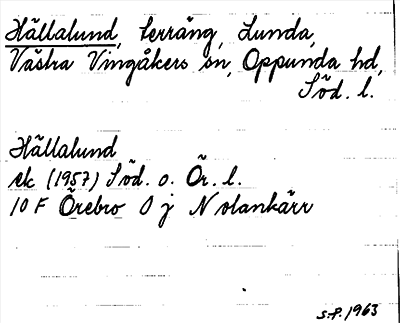 Hällalund, terräng, Lunda,
Västra Vingåkers sn, Oppunda hd,
Söd. l.
Hällalund
ek (1957) Söd. o. Ör. l.
10 F Örebro O j Nolankärr
S.P. 1963